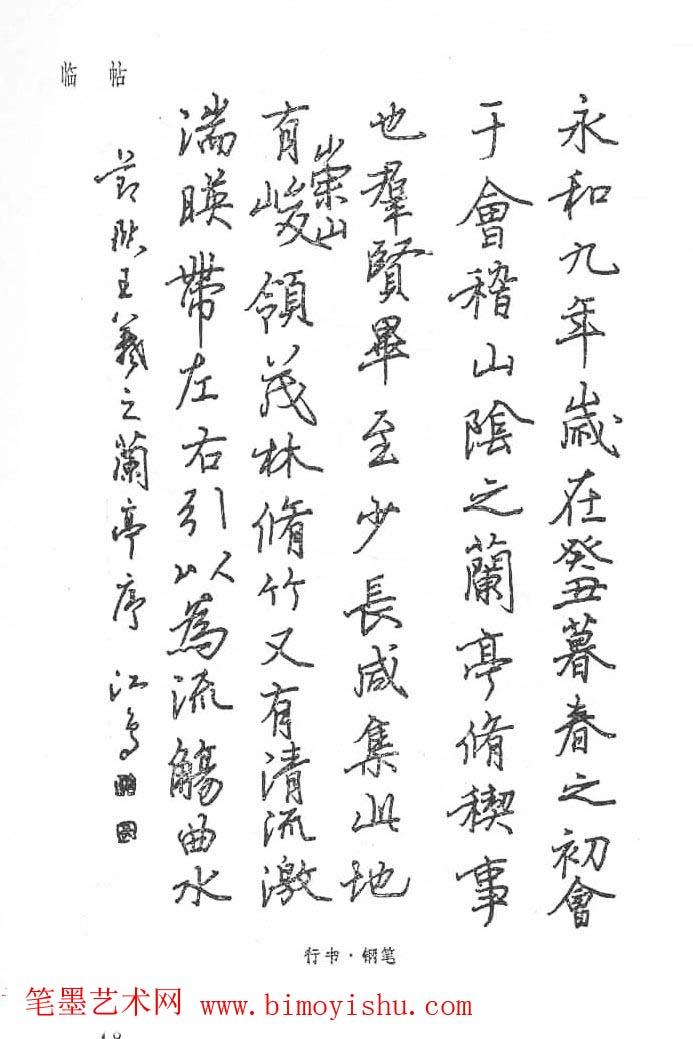 临帖
永和九年歲在癸丑暮春之初會
于會稽山陰之蘭亭脩稧事
也羣賢畢至少長咸集此地
有崇山峻領茂林脩竹又有清流激
湍暎帶左右引以為流觴曲水
節臨王羲之蘭亭序 江鸟
行书·钢笔
笔墨艺术网 www.bimoyishu.com